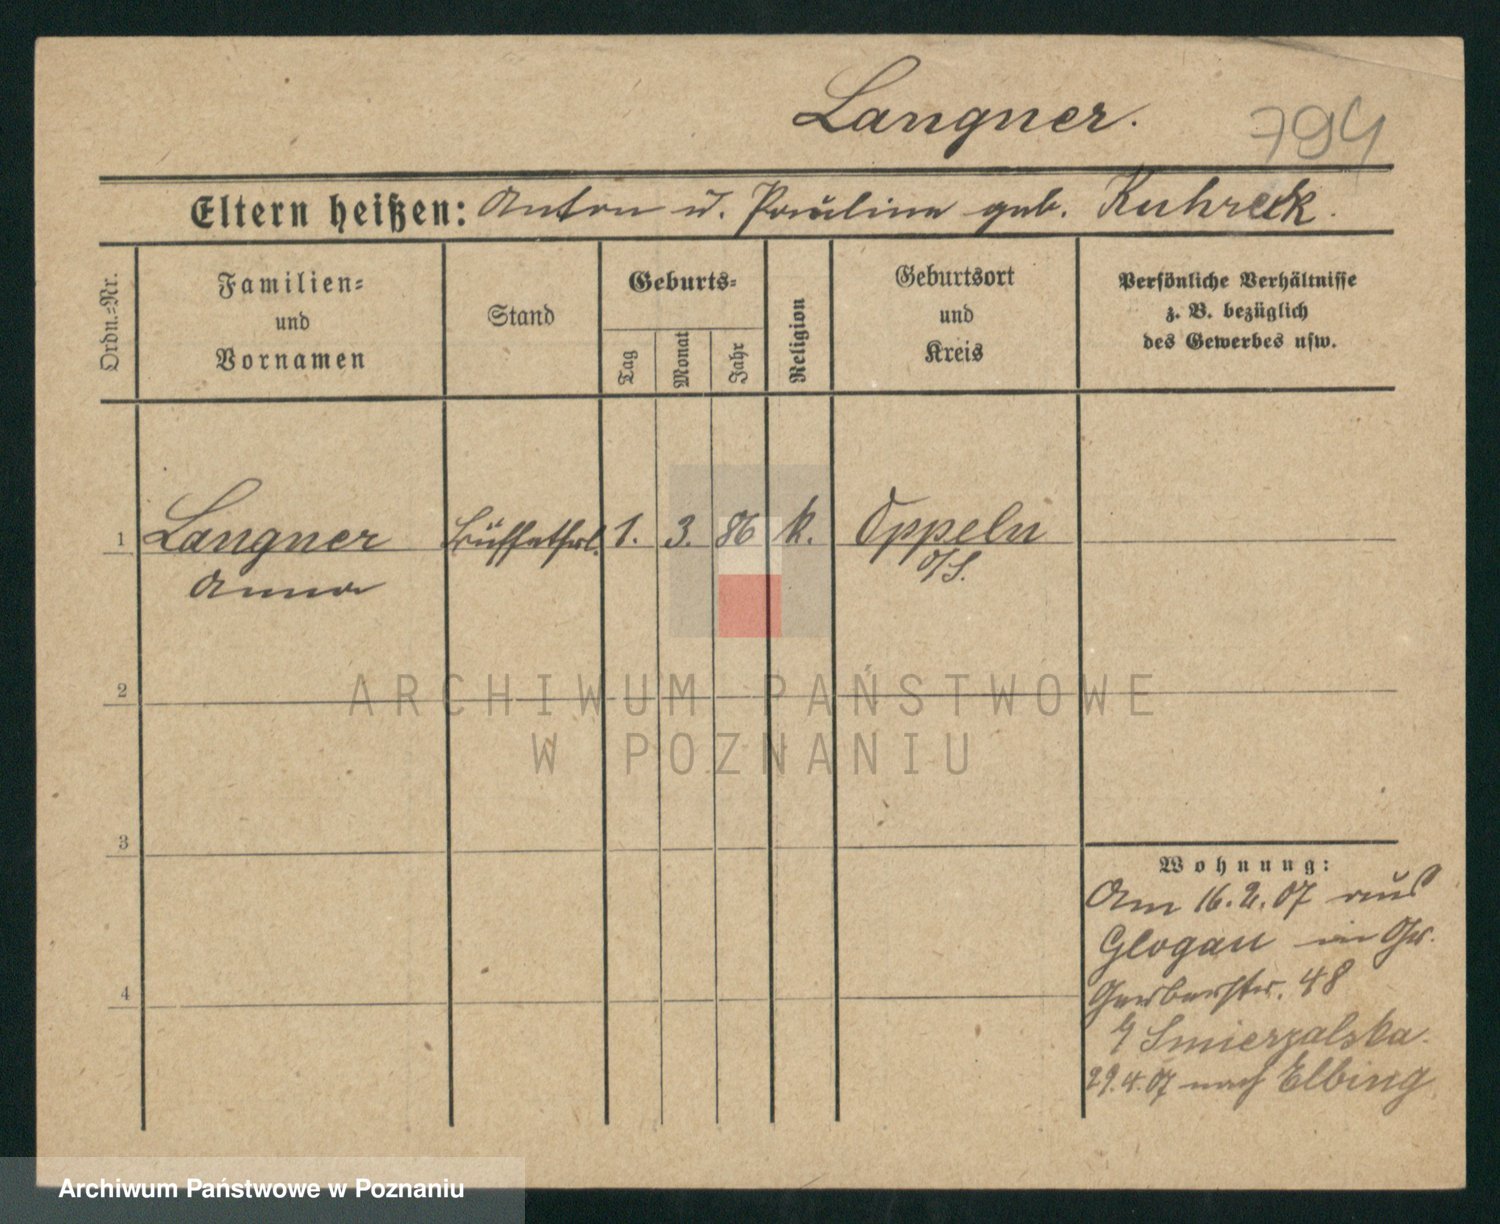 Langner.
794
Eltern heißen: Anton u. Paulina geb. Kuhreck.
Ordn.-Nr.
Familien-
und
Vornamen
Stand
Geburts-
Tag
Monat
Jahr
Religion
Geburtsort
und
Kreis
Persönliche Verhältnisse
z. B. bezüglich
des Gewerbes usw.
1 Langner Büffetfrl. 1. 3. 86 k. Oppeln
Anna O/S.
2
ARCHIWUM PAŃSTWOWE
W POZNANIU
3
Wohnung:
Am 16.2.07 aus
Glogau in Gr.
Gerberstr. 48
4
b/ Smierzalska.
29.4.07 nach Elbing
Archiwum Państwowe w Poznaniu